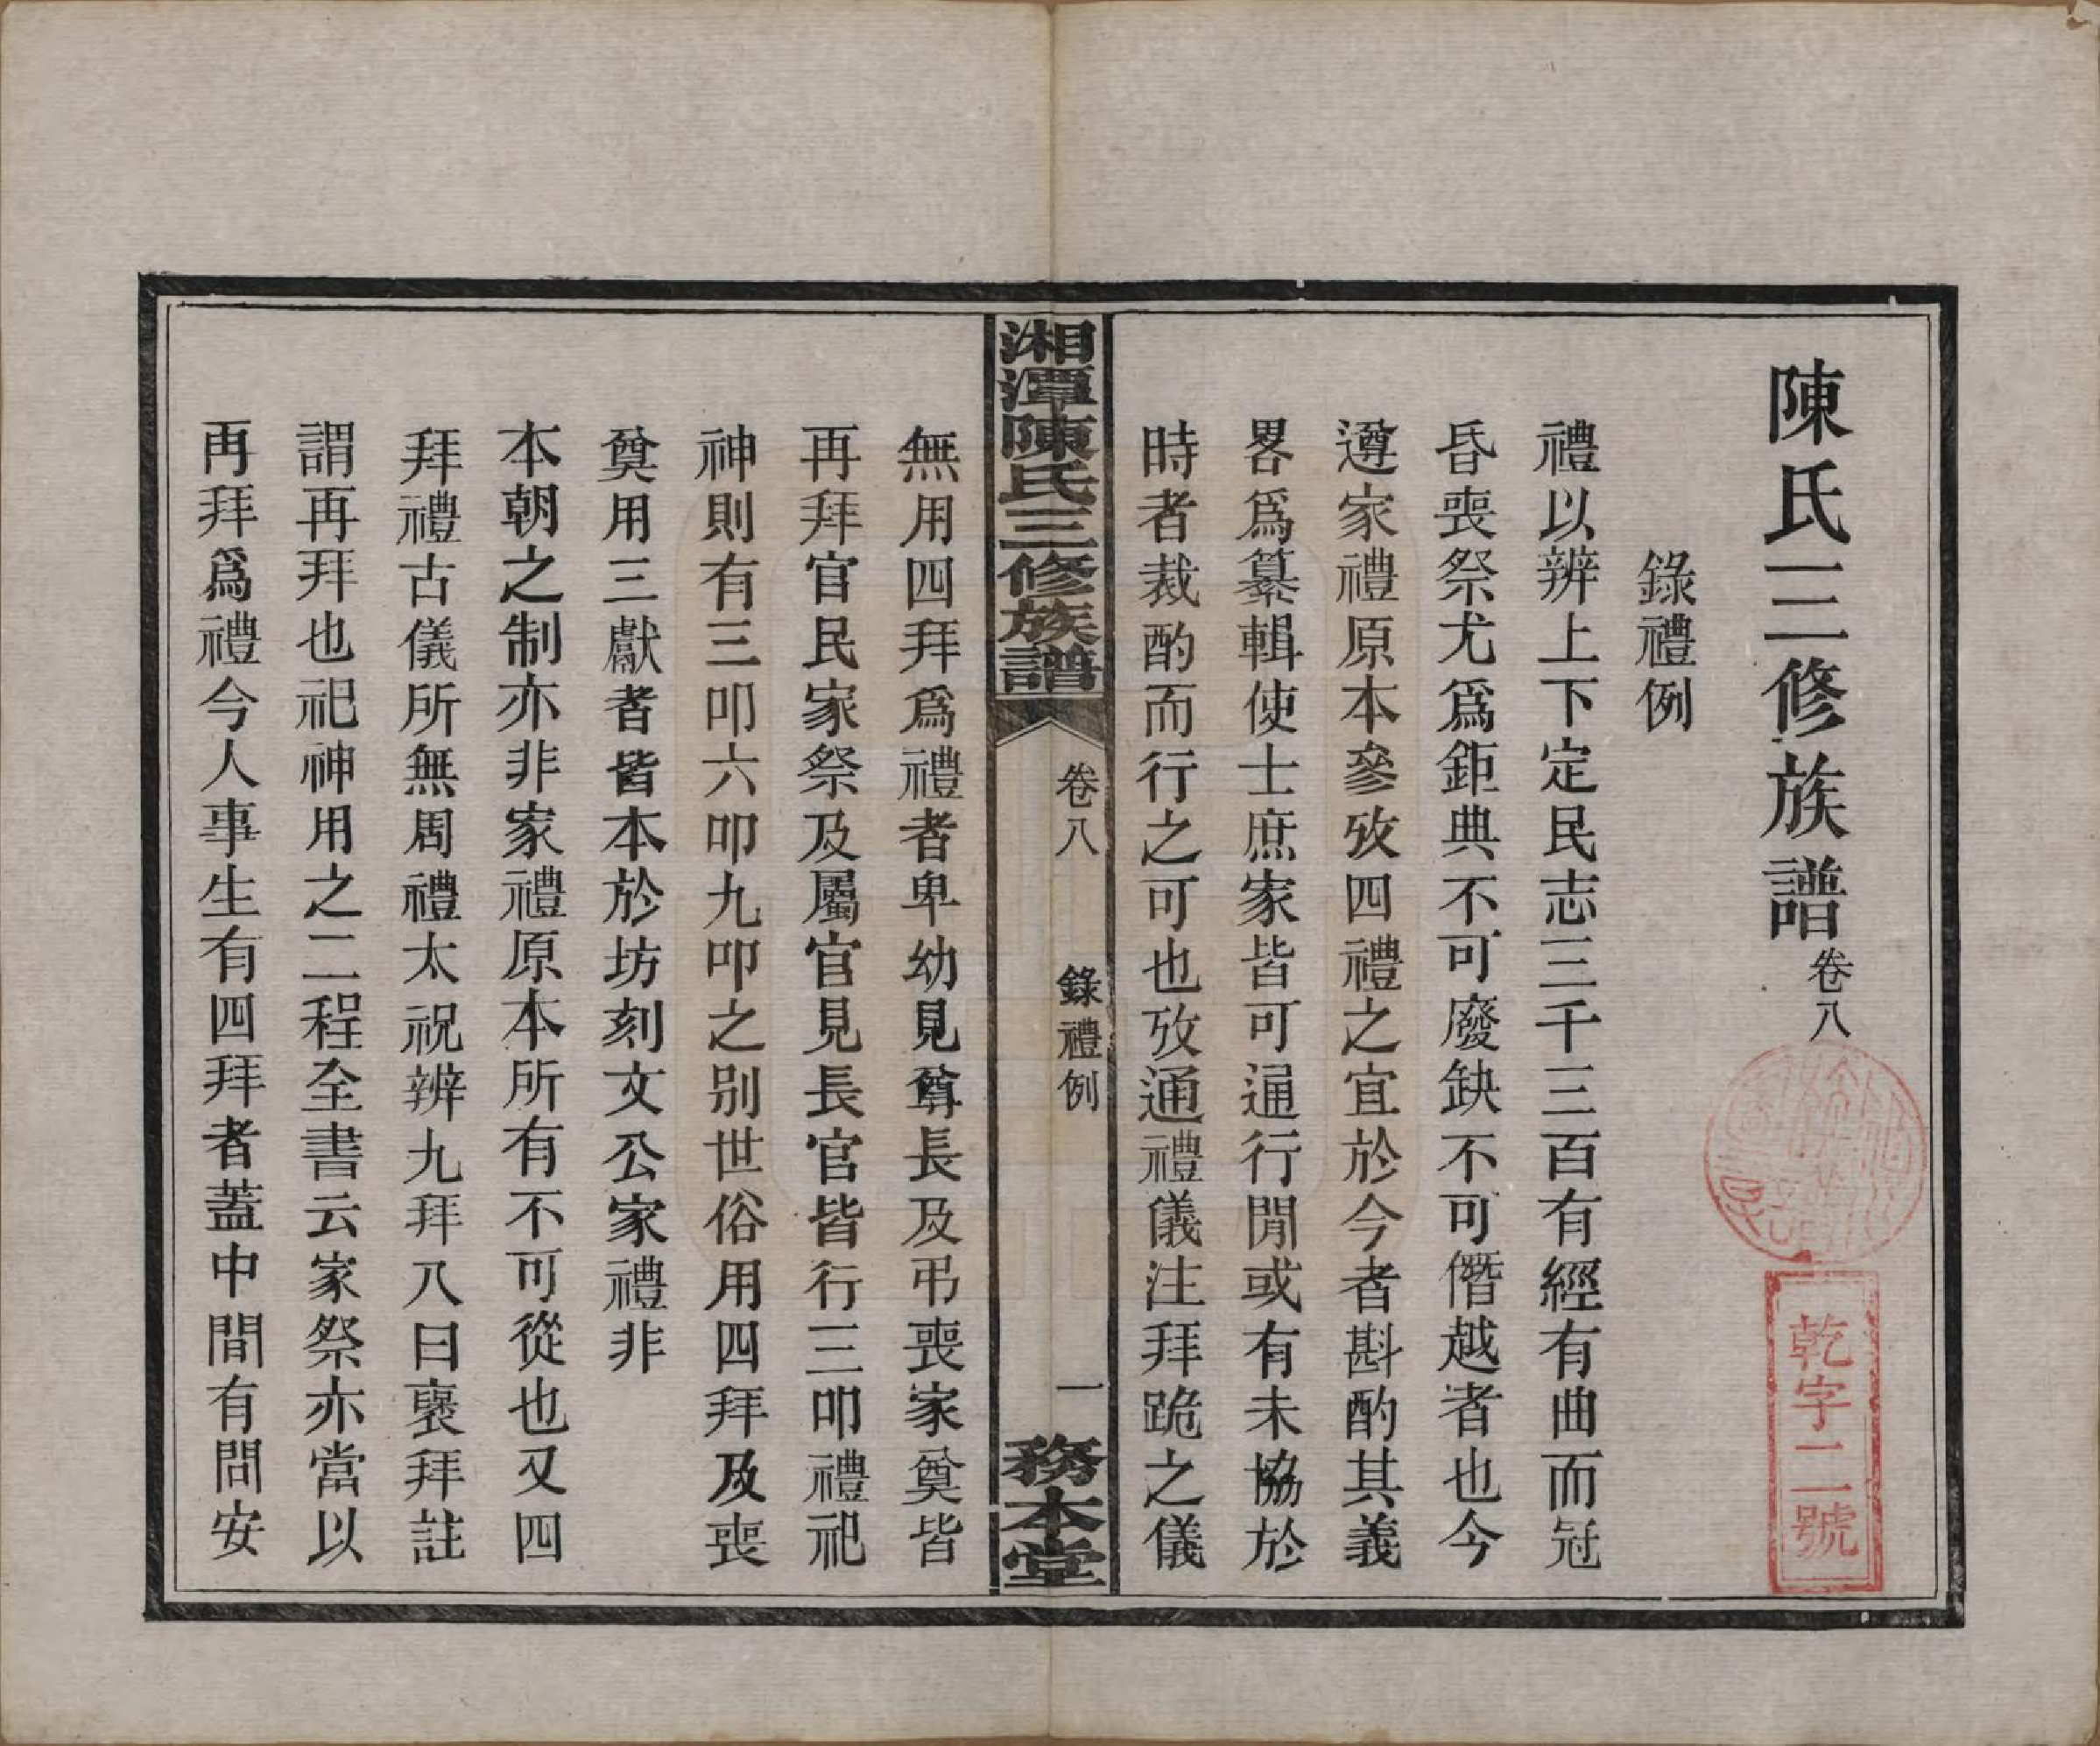 陳氏三修族譜卷八
錄禮例
禮以辨上下定民志三千三百有經有曲而冠
昏喪祭尤爲鉅典不可廢缺不可僭越者也今
遵家禮原本參攷四禮之宜於今者斟酌其義
畧爲纂輯使士庶家皆可通行閒或有未協於
時者裁酌而行之可也攷通禮儀注拜跪之儀
湘潭陳氏三修族譜
卷八
錄禮例
一
務本堂
無用四拜爲禮者卑幼見尊長及弔喪家奠皆
再拜官民家祭及屬官見長官皆行三叩禮祀
神則有三叩六叩九叩之别世俗用四拜及喪
奠用三獻者皆本於坊刻文公家禮非
本朝之制亦非家禮原本所有不可從也又四
拜禮古儀所無周禮太祝辨九拜八曰褒拜註
謂再拜也祀神用之二程全書云家祭亦當以
再拜爲禮今人事生有四拜者蓋中間有問安
乾字二號